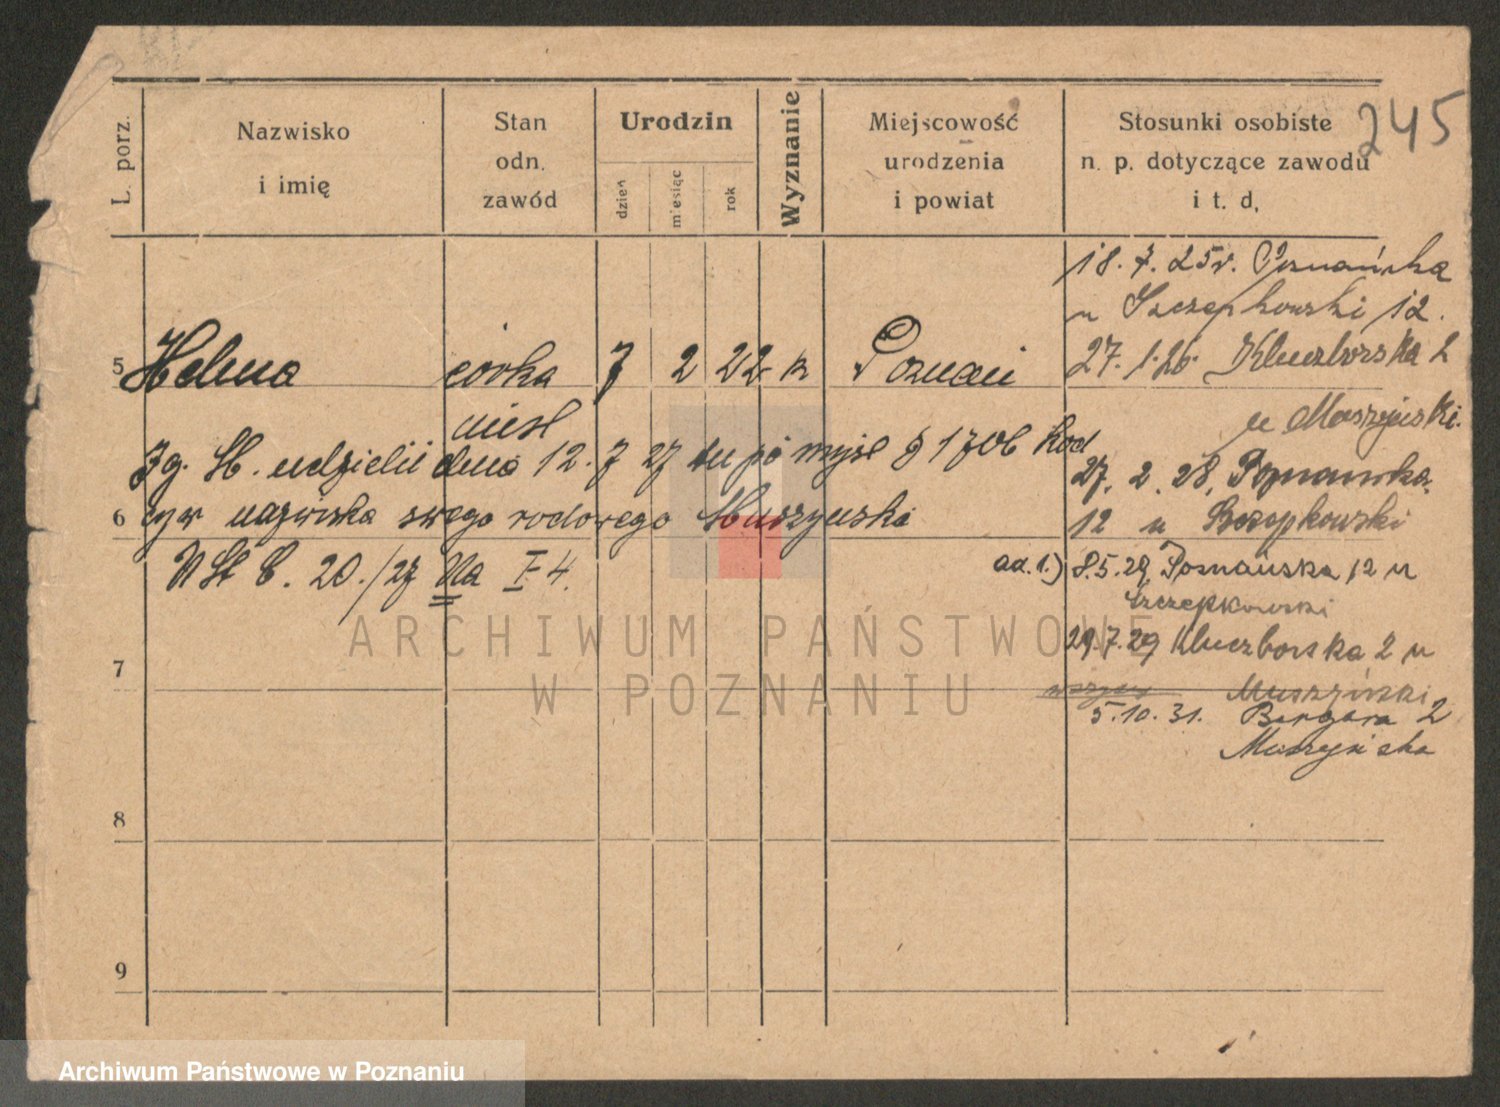 245
L. porz.
Nazwisko
i imię
Stan
odn.
zawód
Urodzin
dzień
miesiąc
rok
Wyznanie
Miejscowość
urodzenia
i powiat
Stosunki osobiste
n. p. dotyczące zawodu
i t. d.
18. 7. 25r. Poznańska
u Szczepkowski 12.
5 Helena córka 7 2 22 k Poznań
27. 1. 26. Kluczborska 2
u Muszyński.
nieśl
Ig. M. udzielił dnia 12. 7 27 tu po myśl § 1706 kod
27. 2. 28, Poznańska
6 cyw nazwiska swego rodowego Muszyńska
12 u Szczepkowski
U St C. 20./27 Na I 4.
ad. 1.) 8.5.29, Poznańska 12 u
Szczepkowski
29.7.29 Kluczborska 2 u
Muszyński
7
5.10.31. 2
Muszyńska
8
9
ARCHIWUM PAŃSTWOWE
W POZNANIU
Archiwum Państwowe w Poznaniu